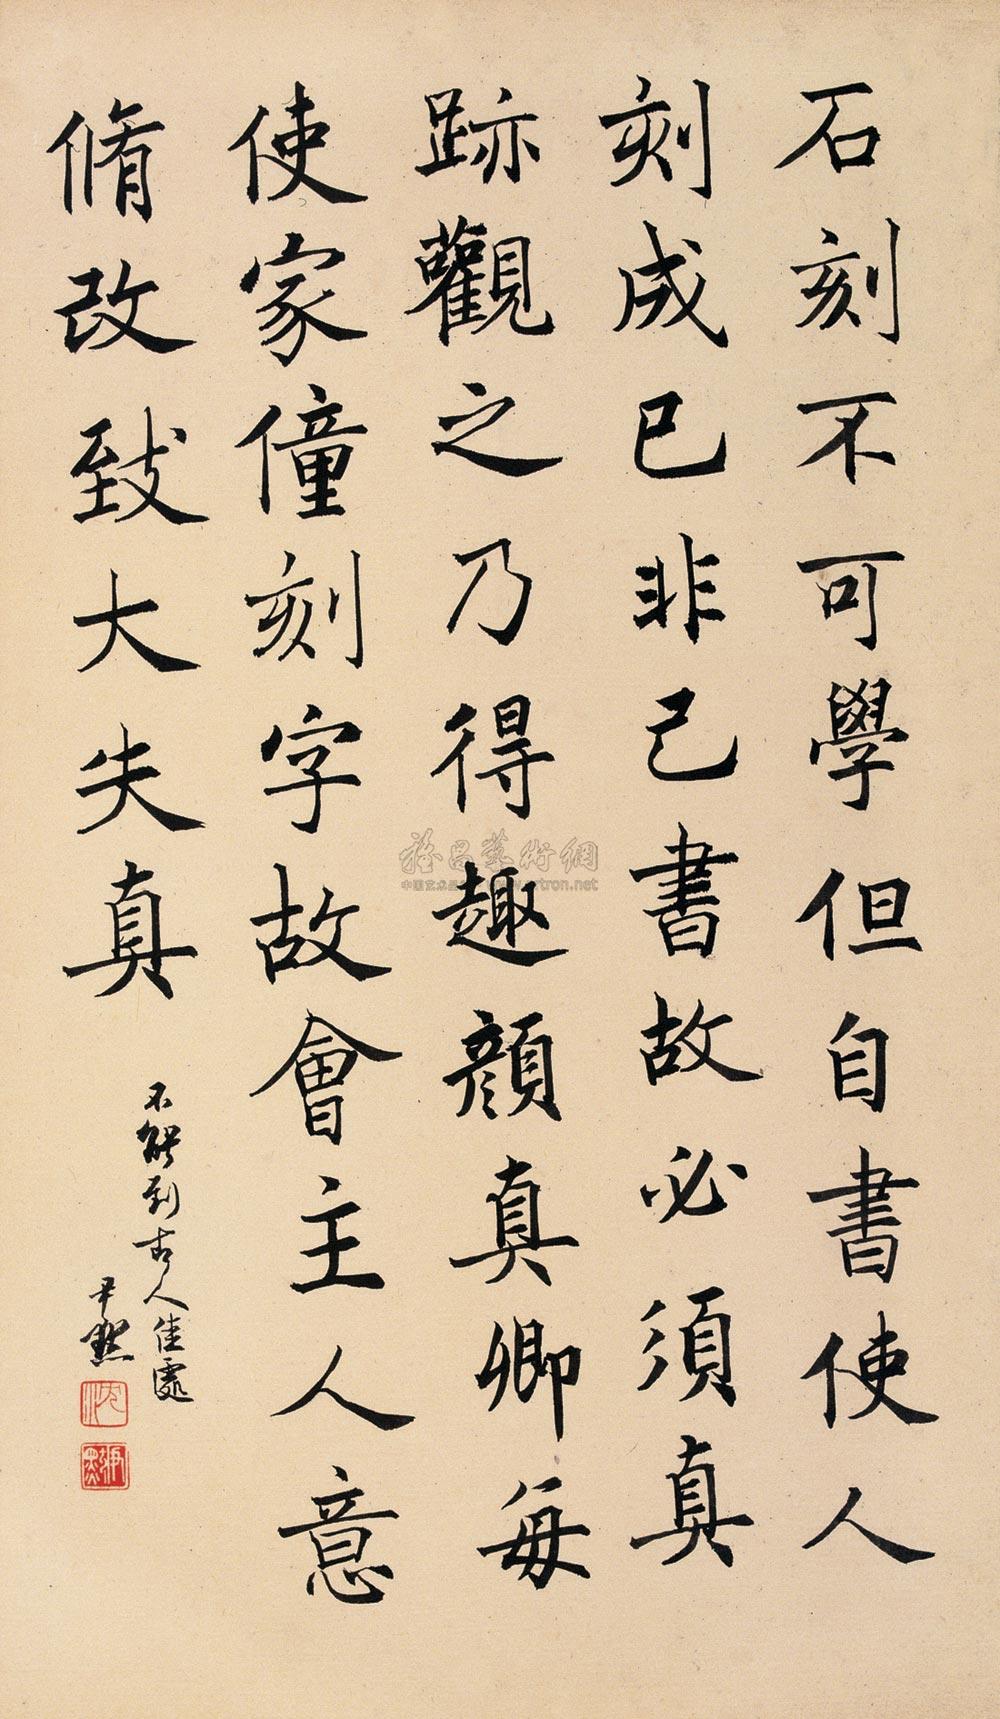 石刻不可學但自書使人
刻成已非己書故必須真
跡觀之乃得趣顏真卿每
使家僮刻字故會主人意
脩改致大失真
不能到古人佳處
尹默
沈
尹默
雅昌藝術網
中国艺术品 www.artron.net